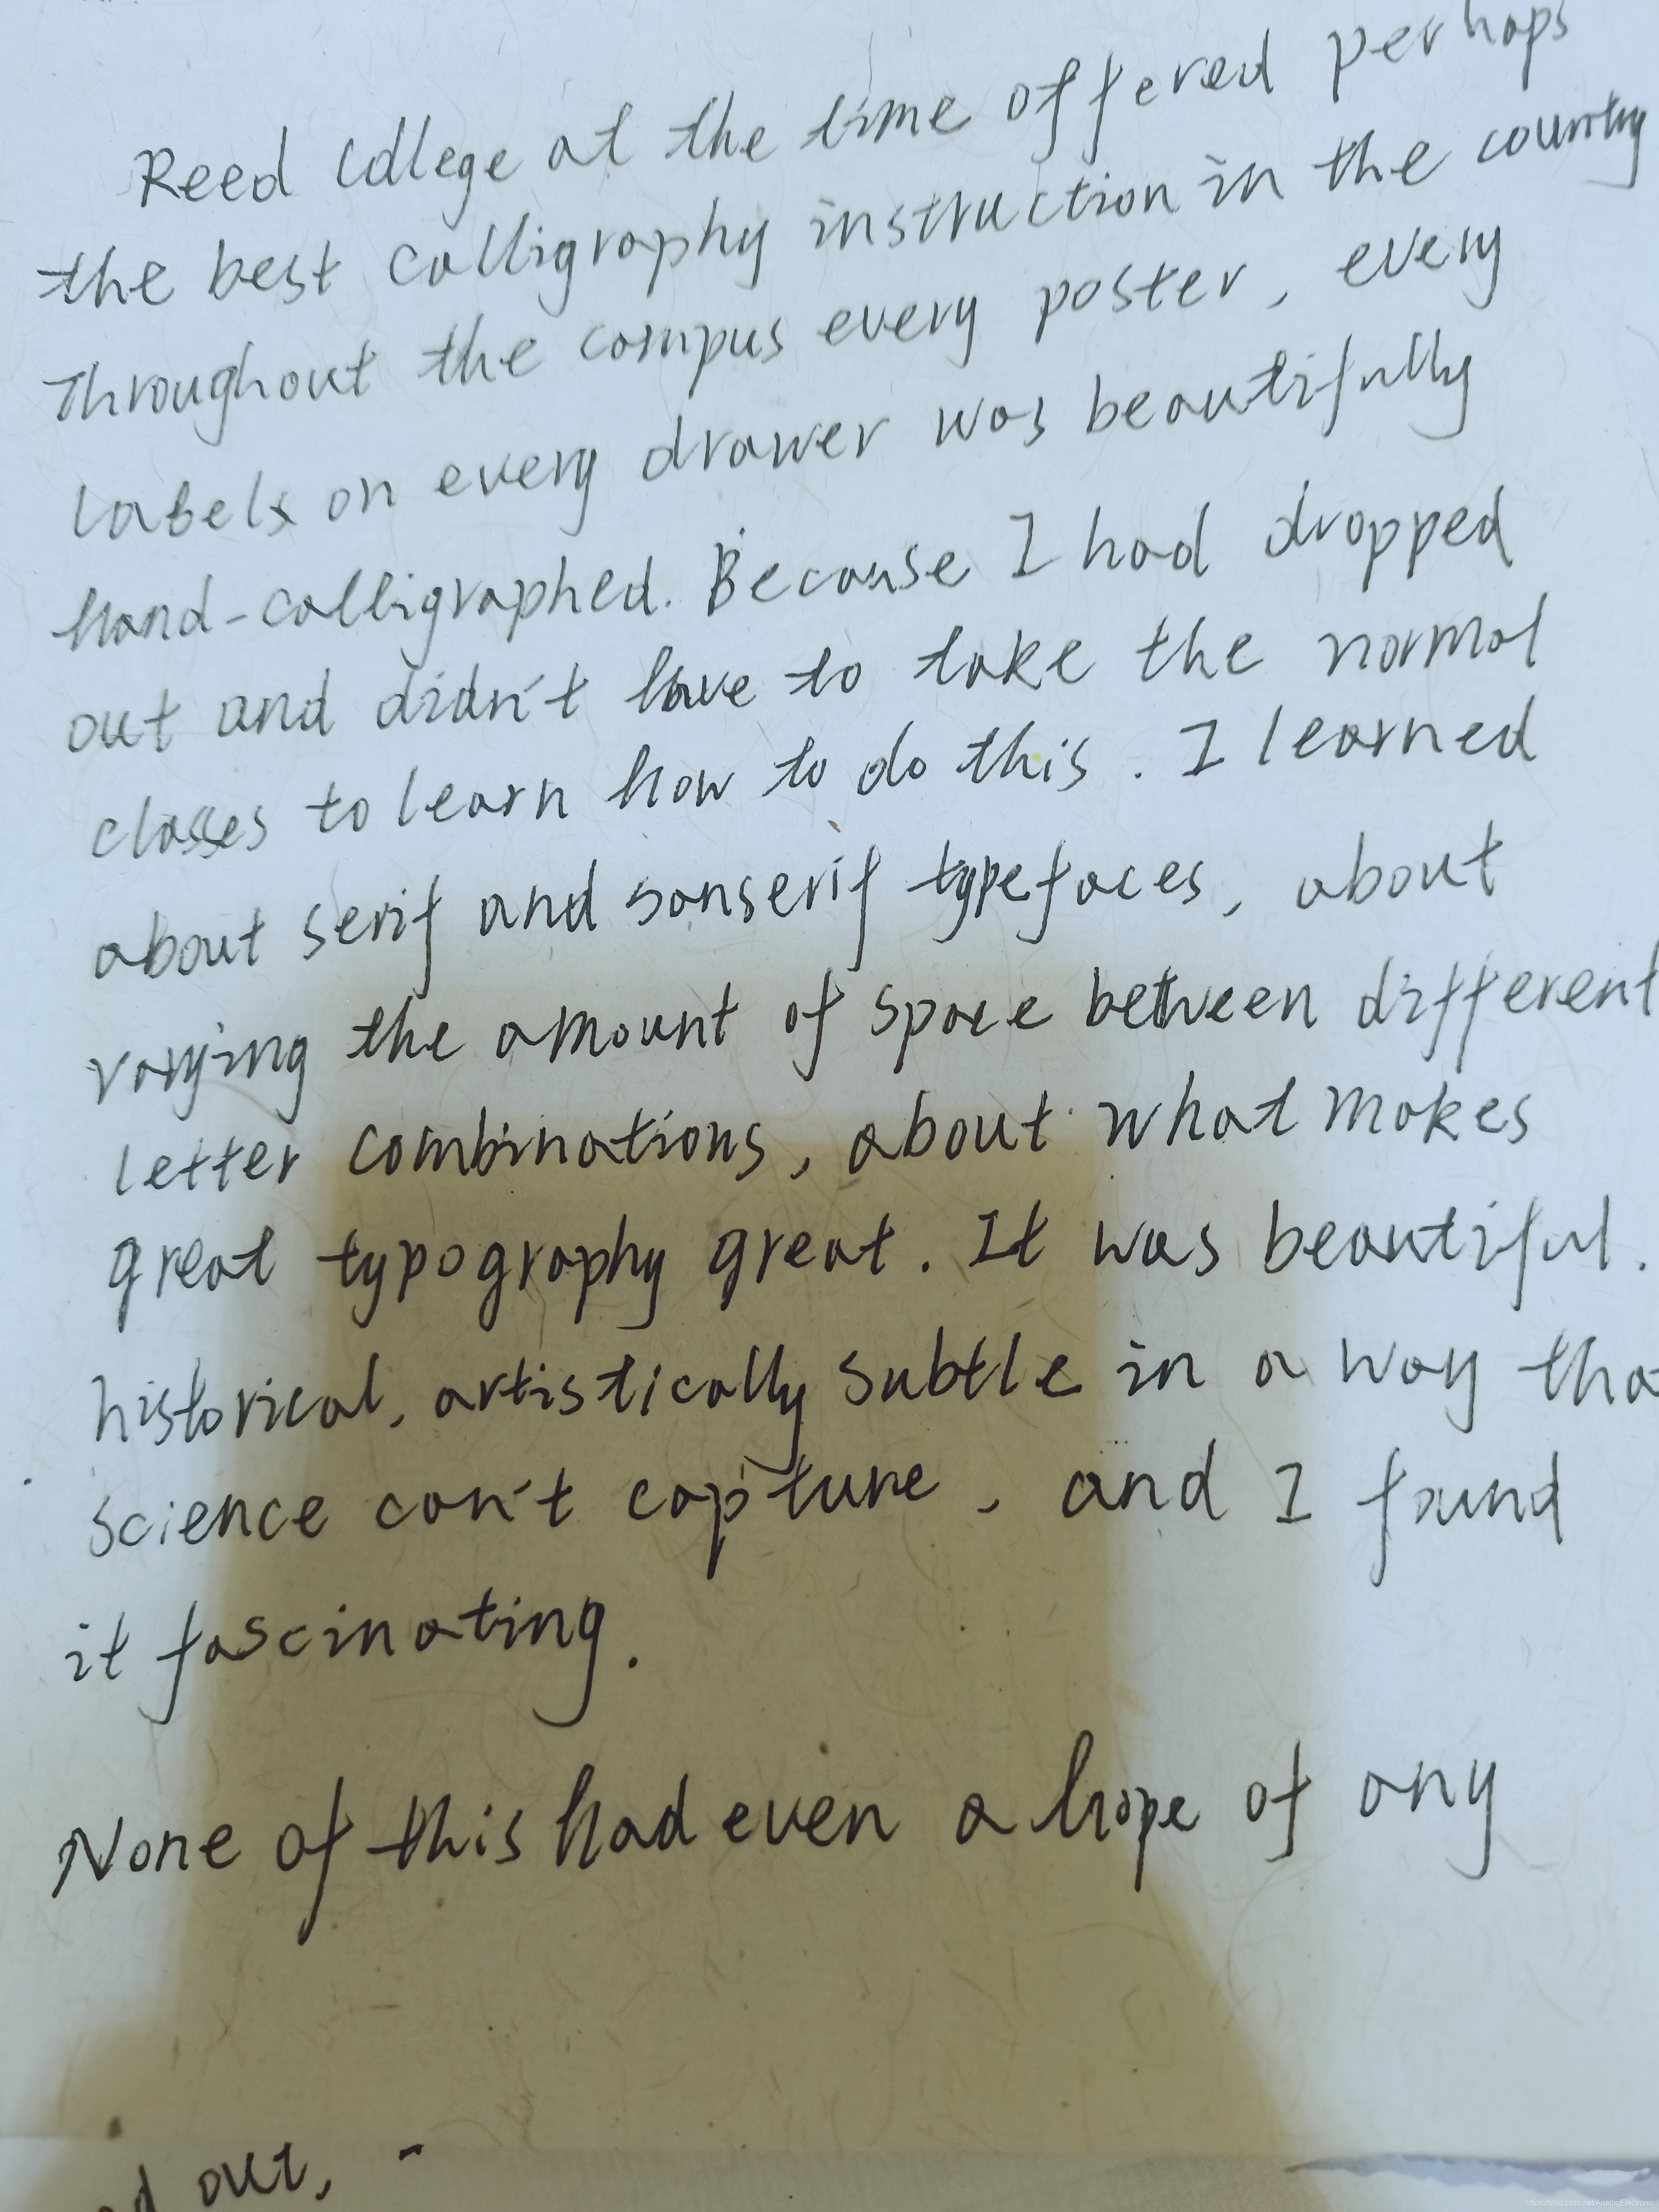 Reed College at the time offered perhaps
the best calligraphy instruction in the country
Throughout the campus every poster, every
labels on every drawer was beautifully
hand-calligraphed. Because I had dropped
out and didn't have to take the normal
classes to learn how to do this. I learned
about serif and sanserif typefaces, about
varying the amount of space between different
letter combinations, about what makes
great typography great. It was beautiful.
historical, artistically subtle in a way tha
science can't capture, and I found
it fascinating.
None of this had even a hope of any
d out, -
https://blog.csdn.net/AnalogElectronic